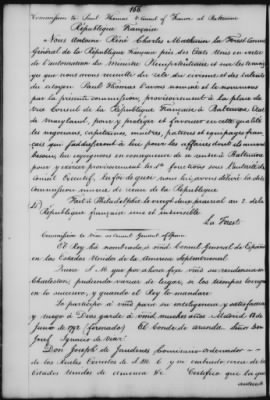 166
Commission to Paul Thomas Consul of France at Baltimore
République Française
Nous Antoine René Charles Mathurin La Forest Consul
Général de la République Française près des Etats Unis en vertu
de l'autorisation du Ministre Plénipotentiaire et sur les temoig
que nous avons recueilli du zele du civisme et des talents
du citoyen Paul Thomas l'avons nommé et le nommons
par la présente commission, provisoirement à la place de
Vice Consul de la République Française à Baltimore, Etat
de Maryland, pour y protéger et favoriser en cette qualité
les négocians, capitaines, maitres, patrons et équipages fran
çais qui s'adresseront à lui pour les affaires dont ils auront
besoin, lui enjoignons en consequence de se rendre à Baltimore
pour y exercer provisoirement les fonctions sous l'autorité du
Conseil Executif, En foi de quoi nous avons délivré la dite
Commission munie du sceau de la République
Fait à Philadelphie le vingt deux prairial an 2 de la
République française une et indivisible
La Forest
Commission to Viar as Consul General of Spain
El Rey ha nombrado à vmd Consul General de España
en los Estados Unidos de la America Septentrional.
Quiere S. M. que por ahora fixe vmd su residencia en
Charleston, pudiendo variar de lugar, si los tiempos
en lo sucesivo, y quando el Rey lo mandare
Lo participo à vmd para su inteligencia y satisfaccion
y ruego à Dios garde à vmd muchos años Madrid 12 de
Junio de 1792 (firmado) El Conde de Aranda Señor Don
Josef Ignacio de Viar
Don Joseph de Jaudenes Comisario ordenador
de los Reales Exercitos de S. M. C. y su
Estados Unidos de America &c Certifico que la que